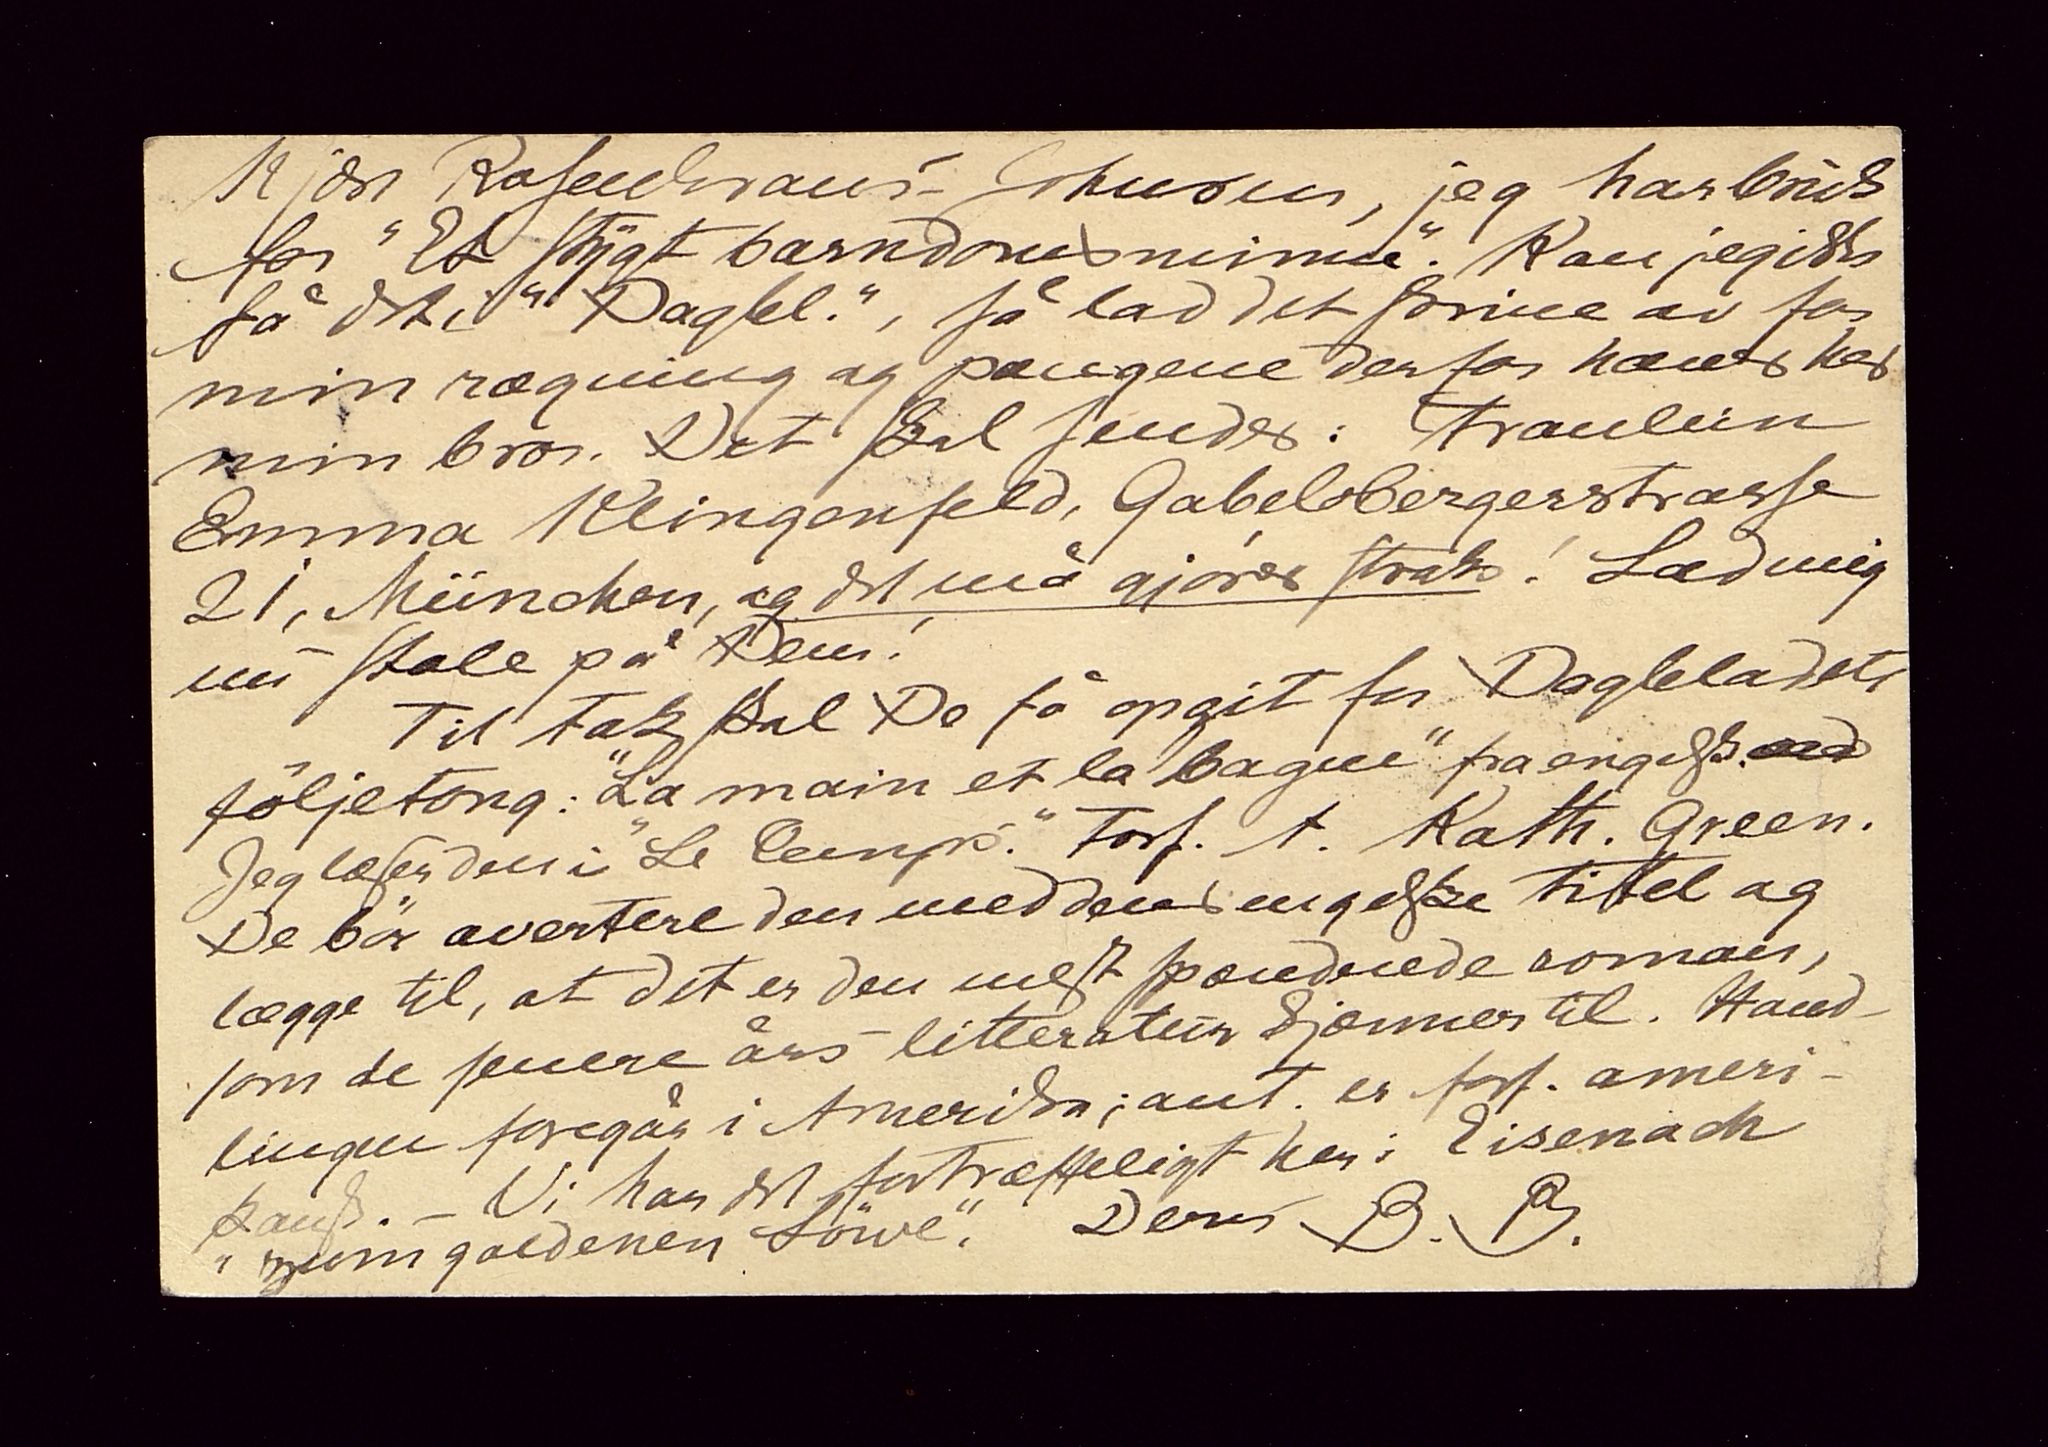 Kjære Rosenkrans-Johnsen, jeg har bruk
for "Et stygt barndomsminne". Kan jeg ikke
få det i "Dagbl.", så lad det skrive av for
min rægning ag pængene derfor hæves hos
min bror. Det skal sendes: Fraulein
Emma Klingenfeld, Gabelsbergerstrasse
21, München, ag det må gjöres straks! Lad mig
nu stole på Dem!
Til tak skal De få opgit for Dagbladets
följetong: "La main et la bague" fra engelsk.
Jeg læser den i "Le Temps." Forf. A. Kath. Green.
De bör avertere den med dens engelske tittel ag
lægge til, at det er den mest spændende roman,
som de senere års litteratur kjænner til. Hand-
lingen foregår i Amerika; ant. er forf. ameri-
kansk. – Vi har det fortræffeligt her i Eisenach
"zum goldenen Löwe". Deres B. B.